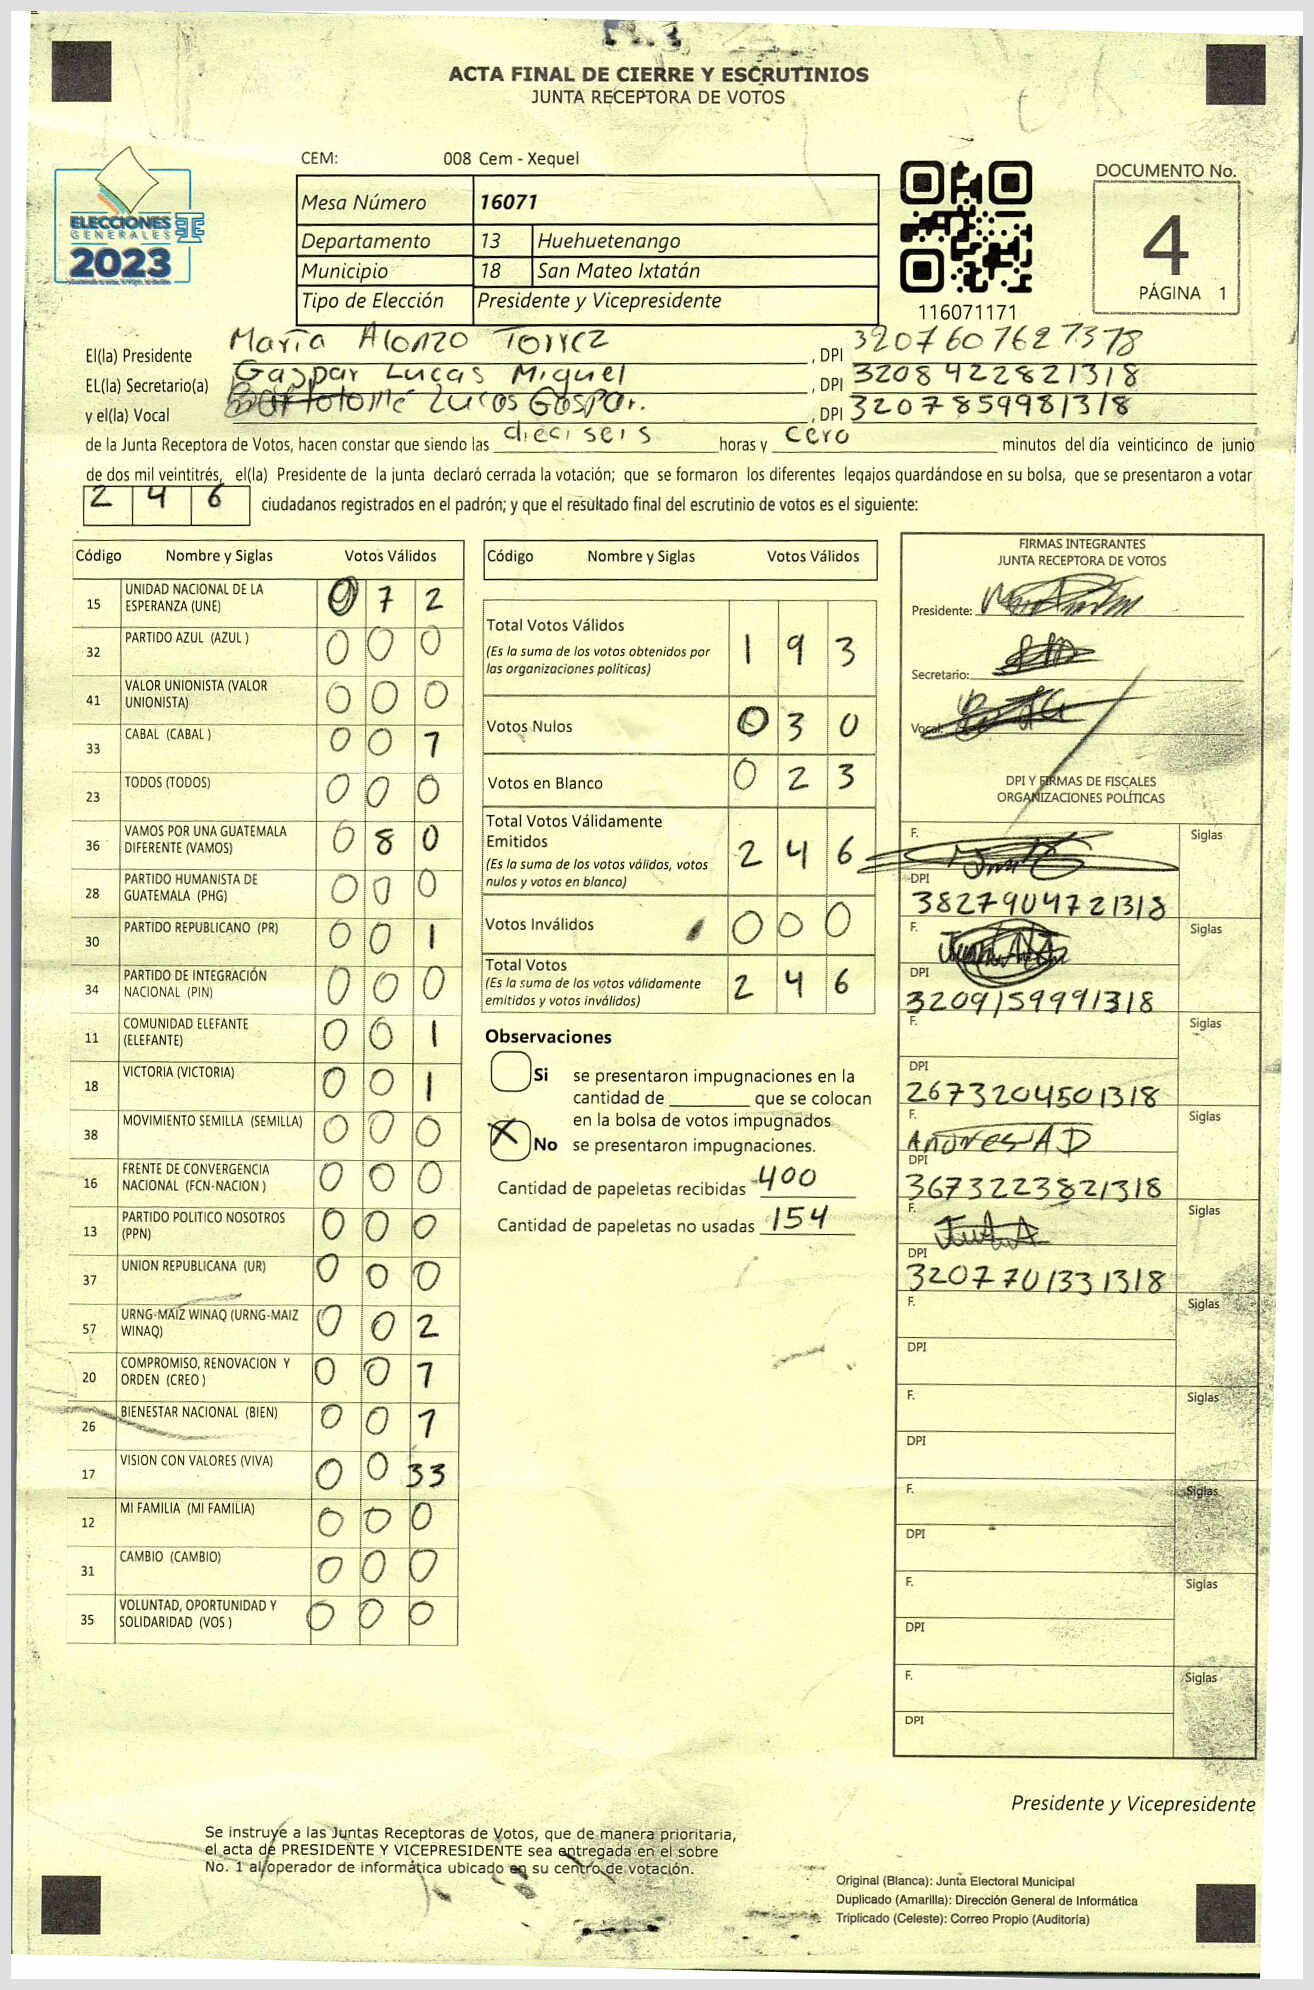 ACTA FINAL DE CIERRE Y ESCRUTINIOS
JUNTA RECEPTORA DE VOTOS
CEM: 008 Cem - Xequel
ELECCIONES
GENERALES
2023
Mesa Número 16071
Departamento 13 Huehuetenango
Municipio 18 San Mateo Ixtatán
Tipo de Elección Presidente y Vicepresidente
116071171
DOCUMENTO No.
4
PÁGINA 1
El(la) Presidente María Alonzo Torrez , DPI 3207607627378
EL(la) Secretario(a) Gaspar Lucas Miguel , DPI 3208422821318
y el(la) Vocal Bartolomé Lucas Gaspar. , DPI 3207859981318
de la Junta Receptora de Votos, hacen constar que siendo las dieciseis horas y cero minutos del día veinticinco de junio
de dos mil veintitrés, el(la) Presidente de la junta declaró cerrada la votación; que se formaron los diferentes legajos guardándose en su bolsa, que se presentaron a votar
2 4 6 ciudadanos registrados en el padrón; y que el resultado final del escrutinio de votos es el siguiente:
Código Nombre y Siglas Votos Válidos
15 UNIDAD NACIONAL DE LA ESPERANZA (UNE) 0 7 2
32 PARTIDO AZUL (AZUL ) 0 0 0
41 VALOR UNIONISTA (VALOR UNIONISTA) 0 0 0
33 CABAL (CABAL ) 0 0 7
23 TODOS (TODOS) 0 0 0
36 VAMOS POR UNA GUATEMALA DIFERENTE (VAMOS) 0 8 0
28 PARTIDO HUMANISTA DE GUATEMALA (PHG) 0 0 0
30 PARTIDO REPUBLICANO (PR) 0 0 1
34 PARTIDO DE INTEGRACIÓN NACIONAL (PIN) 0 0 0
11 COMUNIDAD ELEFANTE (ELEFANTE) 0 0 1
18 VICTORIA (VICTORIA) 0 0 1
38 MOVIMIENTO SEMILLA (SEMILLA) 0 0 0
16 FRENTE DE CONVERGENCIA NACIONAL (FCN-NACION ) 0 0 0
13 PARTIDO POLITICO NOSOTROS (PPN) 0 0 0
37 UNION REPUBLICANA (UR) 0 0 0
57 URNG-MAIZ WINAQ (URNG-MAIZ WINAQ) 0 0 2
20 COMPROMISO, RENOVACION Y ORDEN (CREO ) 0 0 7
26 BIENESTAR NACIONAL (BIEN) 0 0 7
17 VISION CON VALORES (VIVA) 0 0 33
12 MI FAMILIA (MI FAMILIA) 0 0 0
31 CAMBIO (CAMBIO) 0 0 0
35 VOLUNTAD, OPORTUNIDAD Y SOLIDARIDAD (VOS ) 0 0 0
Código Nombre y Siglas Votos Válidos
Total Votos Válidos 1 9 3
(Es la suma de los votos obtenidos por
las organizaciones políticas)
Votos Nulos 0 3 0
Votos en Blanco 0 2 3
Total Votos Válidamente
Emitidos 2 4 6
(Es la suma de los votos válidos, votos
nulos y votos en blanco)
Votos Inválidos 0 0 0
Total Votos 2 4 6
(Es la suma de los votos válidamente
emitidos y votos inválidos)
Observaciones
Si se presentaron impugnaciones en la
cantidad de ________ que se colocan
en la bolsa de votos impugnados
X No se presentaron impugnaciones.
Cantidad de papeletas recibidas 400
Cantidad de papeletas no usadas 154
FIRMAS INTEGRANTES
JUNTA RECEPTORA DE VOTOS
Presidente:
Secretario:
Vocal:
DPI Y FIRMAS DE FISCALES
ORGANIZACIONES POLÍTICAS
F. Siglas
DPI
3827904721318
F. Siglas
DPI
3209159991318
F. Siglas
DPI
2673204501318
F. Siglas
Andres A D
DPI
3673223821318
F. Siglas
DPI
3207701331318
F. Siglas
DPI
F. Siglas
DPI
F. Siglas
DPI
F. Siglas
DPI
F. Siglas
DPI
Presidente y Vicepresidente
Se instruye a las Juntas Receptoras de Votos, que de manera prioritaria,
el acta de PRESIDENTE Y VICEPRESIDENTE sea entregada en el sobre
No. 1 al operador de informática ubicado en su centro de votación.
Original (Blanca): Junta Electoral Municipal
Duplicado (Amarilla): Dirección General de Informática
Triplicado (Celeste): Correo Propio (Auditoría)